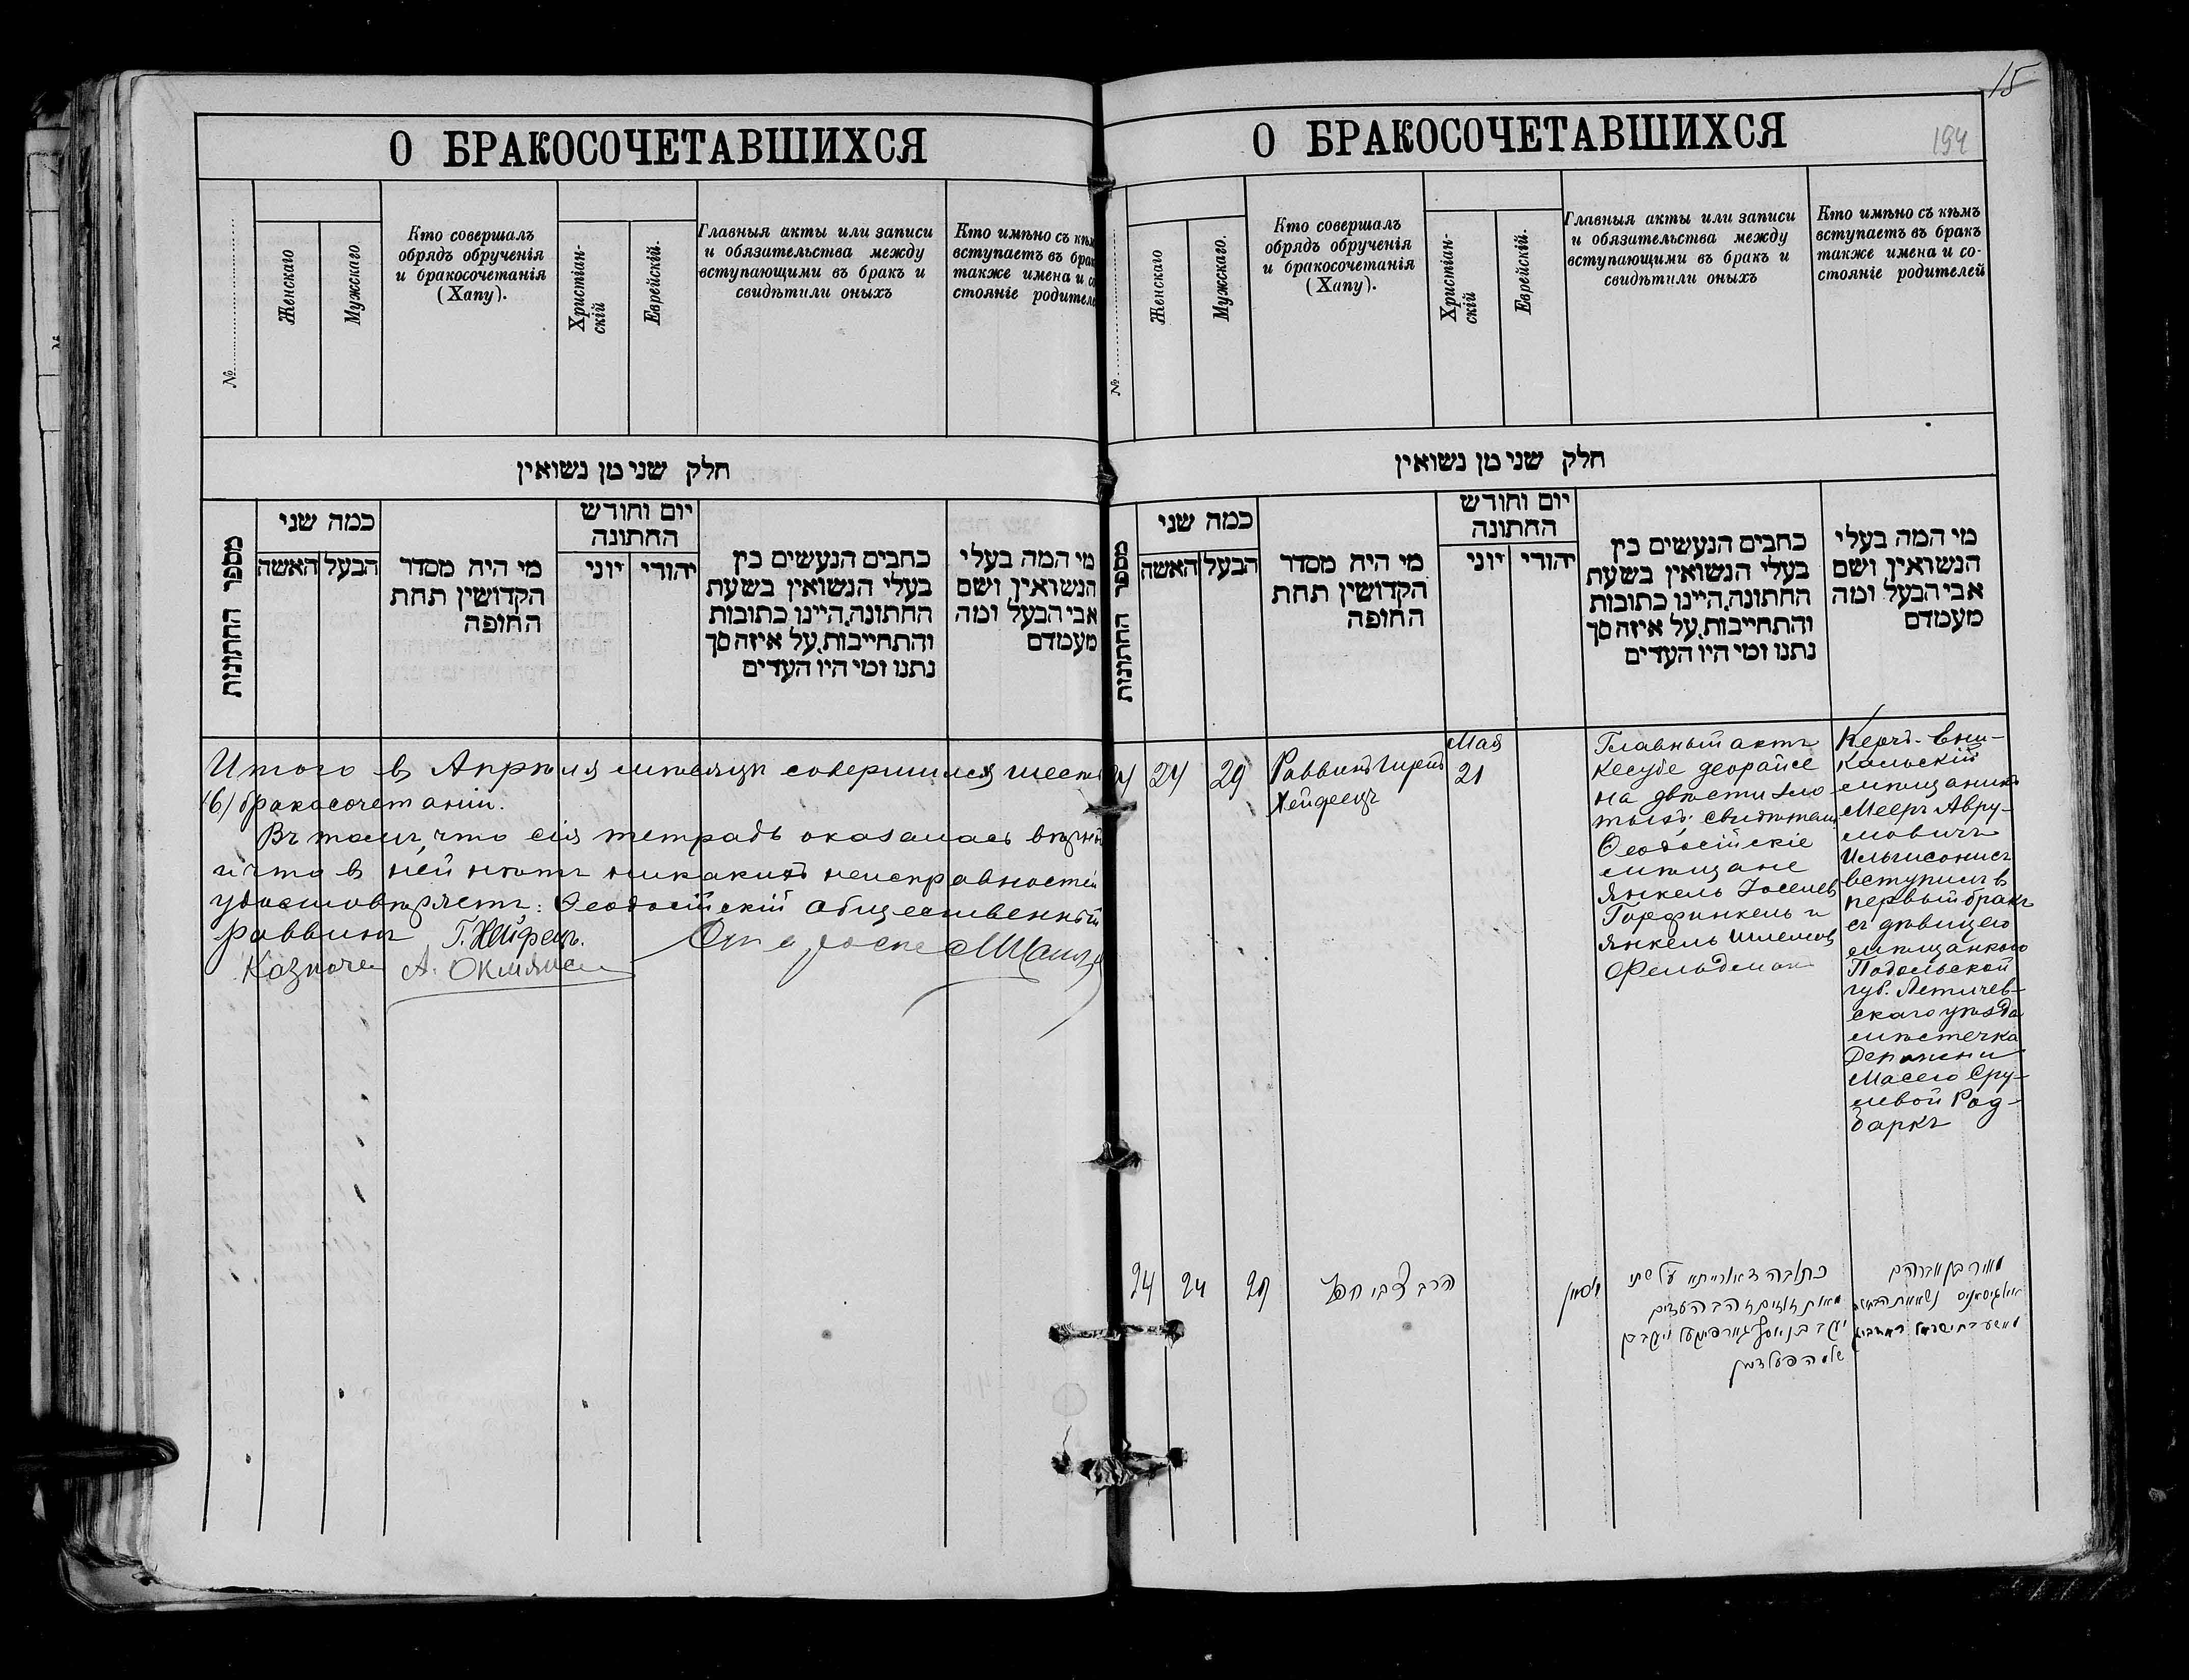 О БРАКОСОЧЕТАВШИХСЯ
№
Женскаго
Мужскаго.
Кто совершалъ
обрядъ обрученія
и бракосочетанія
(Хапу).
Христіан-
скій
Еврейскій.
Главныя акты или записи
и обязательства между
вступающими въ бракъ и
свидѣтили оныхъ
Кто имѣно съ кѣм
вступаетъ въ брак
также имена и с
стояніе родител
חלק שני מן נשואין
מספר החתונות
כמה שני
האשה
הבעל
מי היה מסדר
הקדושין תחת
החופה
יום וחודש
החתונה
יוני
יהודי
כתבים הנעשים בין
בעלי הנשואין בשעת
החתונה, היינו כתובות
והתחייבות, על איזה סך
נתנו ומי היו העדים
מי המה בעלי
הנשואין ושם
אבי הבעל ומה
מעמדם
Итого в Апрѣля мѣсяцѣ совершился шесть
(6) бракосочетаній.
Въ томъ, что сія тетрадь оказалась вѣрной
и что в ней нѣтъ никакихъ неисправностей
удостовѣряетъ: Ѳеодосійскій Общественный
раввинъ Г. Хейфецъ.
Казначей А.
15
194
О БРАКОСОЧЕТАВШИХСЯ
№
Женскаго
Мужскаго.
Кто совершалъ
обрядъ обрученія
и бракосочетанія
(Хапу).
Христіан-
скій
Еврейскій.
Главныя акты или записи
и обязательства между
вступающими въ бракъ и
свидѣтили оныхъ
Кто имѣно съ кѣмъ
вступаетъ въ бракъ
также имена и со-
стояніе родителей
חלק שני מן נשואין
מספר החתונות
כמה שני
האשה
הבעל
מי היה מסדר
הקדושין תחת
החופה
יום וחודש
החתונה
יוני
יהודי
כתבים הנעשים בין
בעלי הנשואין בשעת
החתונה, היינו כתובות
והתחייבות, על איזה סך
נתנו ומי היו העדים
מי המה בעלי
הנשואין ושם
אבי הבעל ומה
מעמדם
24
24
29
Раввинъ Гиршъ
Хейфецъ
Мая
21
Главный актъ
кесубе деорайсе
на двѣсти зло
тыхъ; свидѣтели
Ѳеодосійскіе
мѣщане
Янкель Іоселев
Горфинкель и
Янкель Шлемов
Фельдман
Керчъ-Ени-
кальскій
мѣщанинъ
Мееръ Авру-
мовичъ
вступилъ в
первый бракъ
съ дѣвицею
мѣщанкою
Подольской
губ. Летичев-
скаго уѣзда
мѣстечка
Деражни
Масею Сру-
левой Род-
баркъ
24
24
29
הרב צבי חפץ
סיון
כתובה דאורייתא על שתי
מאות זוזים זהב העדים
יעקב בן יוסף גורפינקעל ויעקב בן
שלמה פעלדמן
מאיר בן אברהם